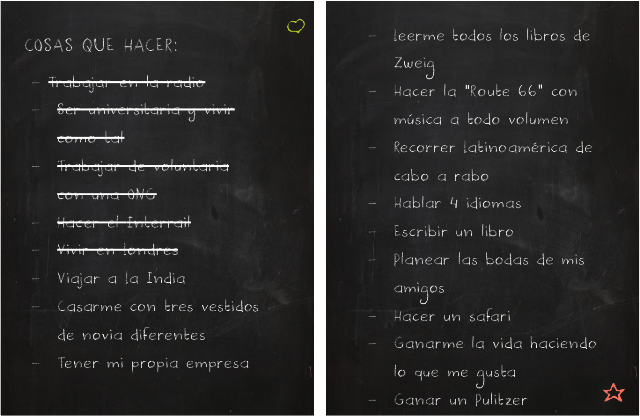 COSAS QUE HACER:
- Trabajar en la radio
- Ser universitaria y vivir
como tal
- Trabajar de voluntaria
con una ONG
- Hacer el Interrail
- Vivir en londres
- Viajar a la India
- Casarme con tres vestidos
de novia diferentes
- Tener mi propia empresa
- leerme todos los libros de
Zweig
- Hacer la "Route 66" con
música a todo volumen
- Recorrer latinoamérica de
cabo a rabo
- Hablar 4 idiomas
- Escribir un libro
- Planear las bodas de mis
amigos
- Hacer un safari
- Ganarme la vida haciendo
lo que me gusta
- Ganar un Pulitzer